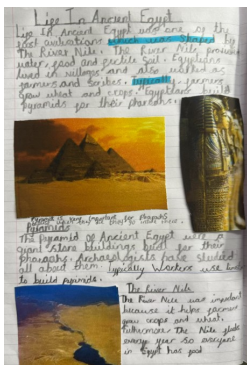 Life In Ancient Egypt
Life in Ancient Egypt was one of the
civilizations which was shaped by
The River Nile. The River Nile provided
water, food and fertile soil. Egyptians
lived in villages and also worked as
farmers and scribes. Typically farmers
grow wheat and crops. Egyptians build
pyramids for their pharaohs.
Pyramid is very important for pharaohs
Pyramids
The Pyramid of Ancient Egypt were a
giant stone buildings built for their
pharaohs. Archaeologists have studied
all about them. Typically workers use
to build pyramids.
The River Nile
The River Nile was important
because it helps farmers
grow crops and wheat.
Futhermore The Nile floods
every year so everyone
in Egypt has food